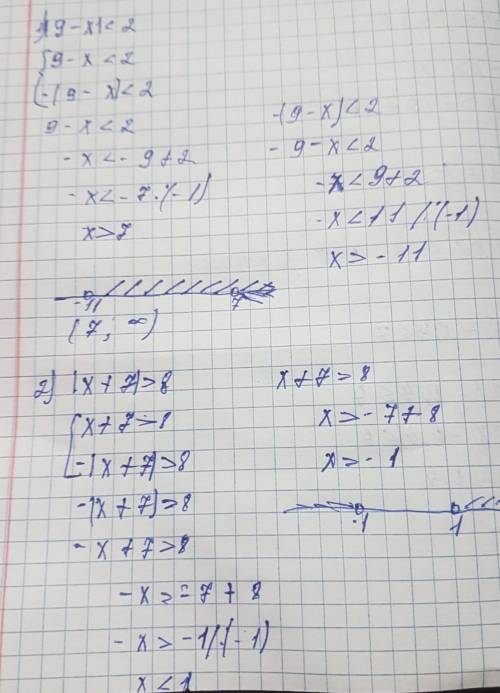 1) |9-x|<2
{9-x<2
{-(9-x)<2
9-x<2
-x<-9+2
-x<-7·(-1)
x>7
-(9-x)<2
-9-x<2
-x<9+2
-x<11/·(-1)
x>-11
-11 7
(7; ∞)
2) |x+7|>8
{x+7>8
-(x+7)>8
-(x+7)>8
-x+7>8
-x>-7+8
-x>-1/·(-1)
x<1
x+7>8
x>-7+8
x>-1
-1 1